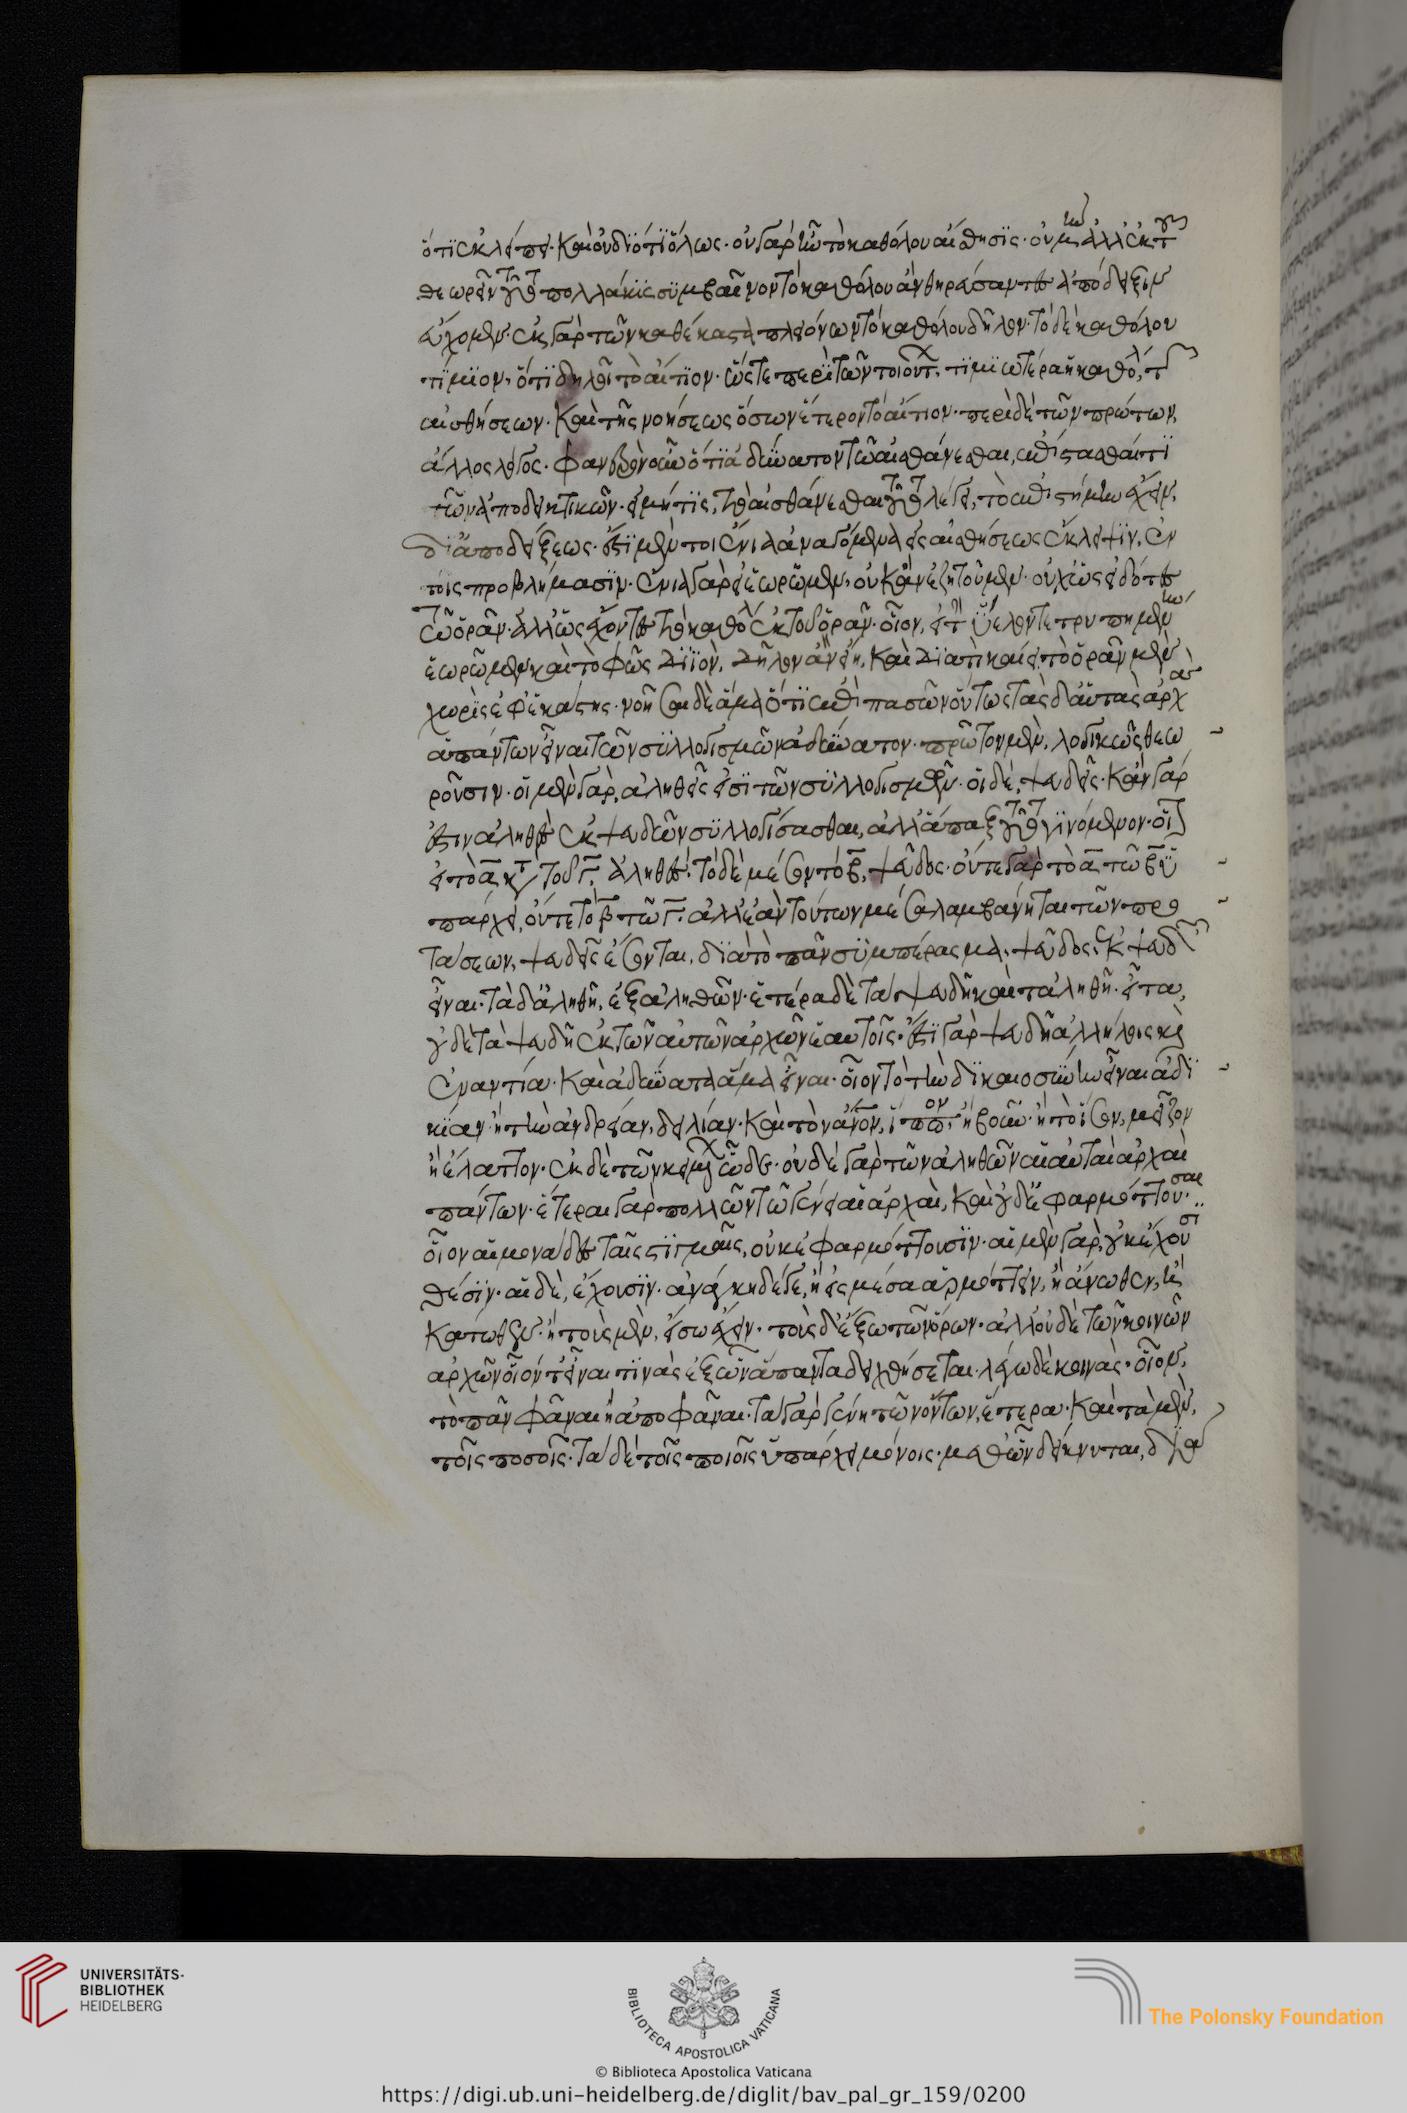 ὅτι ἐκλείπει. καὶ οὐ διότι ὅλως. οὐ γὰρ ἦν τὸ καθόλου αἴσθησις. οὐ μὴν ἀλλ' ἐκ τοῦ
θεωρεῖν τοῦτο πολλάκις συμβαῖνον τὸ καθόλου ἀνθηρεύσαντες ἀπόδειξιν
εἴχομεν. ἐκ γὰρ τῶν καθέκαστα πλειόνων τὸ καθόλου δῆλον. τὸ δὲ καθόλου
τίμιον, ὅτι δηλοῖ τὸ αἴτιον. ὥστε περὶ τῶν τοιούτων, τιμιωτέρα ἡ καθόλου, τῶν
αἰσθήσεων. καὶ τῆς νοήσεως ὅσων ἕτερον τὸ αἴτιον. περὶ δὲ τῶν πρώτων,
ἄλλος λόγος. φανερὸν οὖν ὅτι ἀδύνατον τῶ αἰσθάνεσθαι, ἐπίστασθαί τι
τῶν ἀποδεικτικῶν. εἰ μή τις, τὸ αἰσθάνεσθαι τοῦτο λέγει, τὸ ἐπιστήμην ἔχειν,
δι' ἀποδείξεως. ἔστι μέντοι ἔνια ἀναγόμενα εἰς αἰσθήσεως ἔκλειψιν, ἐν
τοῖς προβλήμασιν. ἔνια γὰρ εἰ ἑωρῶμεν, οὐκ ἂν ἐζητοῦμεν. οὐχ ὡς εἰδότες
τῶ ὁρᾶν. ἀλλ' ὡς ἔχοντες τὸ καθόλου ἐκ τοῦ ὁρᾶν. οἷον, εἰ τὴν ὕελον τετρυπημένην
ἑωρῶμεν καὶ τὸ φῶς διϊὸν, δῆλον ἂν εἴη, καὶ διατί καίει τὸ ὁρᾶν μὲν
χωρὶς ἐφ' ἑκάστης. νοῆσαι δὲ ἅμα ὅτι ἐπὶ πασῶν οὕτως τὰς δ' αὐτὰς ἀρχὰς
ἁπάντων εἶναι τῶν συλλογισμῶν ἀδύνατον. πρῶτον μὲν, λογικῶς θεω
ροῦσιν. οἱ μὲν γὰρ, ἀληθεῖς εἰσὶ τῶν συλλογισμῶν. οἱ δὲ, ψευδεῖς. κἂν γάρ
ἐστιν ἀληθὲς ἐκ ψευδῶν συλλογίσασθαι, ἀλλ' ἅπαξ τοῦτο γινόμενον. οἷον
εἰ τὸ α κατὰ τοῦ γ, ἀληθές. τὸ δὲ μέσον τὸ β, ψεῦδος. οὔτε γὰρ τὸ α τῶ β ὑ
πάρχει, οὔτε τὸ β τῶ γ. ἀλλ' ἐὰν τούτων μέσα λαμβάνηται τῶν προ
τάσεων, ψευδεῖς ἔσονται, διὰ τὸ πᾶν συμπέρασμα, ψεῦδος, ἐκ ψευδῶν
εἶναι. τὰ δ' ἀληθῆ, ἐξ ἀληθῶν. ἕτερα δὲ τὰ ψευδῆ καὶ τἀληθῆ. εἶτα,
οὐδὲ τὰ ψευδῆ ἐκ τῶν αὐτῶν ἀρχῶν ἑαυτοῖς. ἔστι γὰρ ψευδῆ ἀλλήλοις καὶ
ἐναντία. καὶ ἀδύνατα ἅμα εἶναι. οἷον τὸ τὴν δικαιοσύνην εἶναι ἀδι
κίαν. ἢ τὴν ἀνδρείαν, δειλίαν. καὶ τὸν ἄνον, ἵππον. ἢ βοῦν. ἢ τὸ ἴσον, μεῖζον
ἢ ἔλαττον. ἐκ δὲ τῶν κειμένων ὧδε. οὐδὲ γὰρ τῶν ἀληθῶν αἱ αὐταὶ ἀρχαὶ
πάντων. ἕτεραι γὰρ πολλῶν τῶ γένει αἱ ἀρχαὶ, καὶ οὐδ' ἐφαρμόττουσαι.
οἷον αἱ μονάδες ταῖς στιγμαῖς, οὐκ ἐφαρμόττουσιν. αἱ μὲν γὰρ, οὐκ ἔχουσι
θέσιν. αἱ δὲ, ἔχουσιν. ἀνάγκη δέ γε, ἢ εἰς μέσα ἁρμόττειν, ἢ ἄνωθεν, ἢ
κάτωθεν. ἢ τοὺς μὲν, ἔσω ἔχειν. τοὺς δ' ἔξω τῶν ὅρων. ἀλλ' οὐδὲ τῶν κοινῶν
ἀρχῶν οἷόν τ' εἶναι τινὰς ἐξ ὧν ἅπαντα δειχθήσεται. λέγω δὲ κοινὰς. οἷον,
τὸ πᾶν φάναι ἢ ἀποφάναι. τὰ γὰρ γένη τῶν ὄντων, ἕτερα. καὶ τὰ μὲν,
τοῖς ποσοῖς. τὰ δὲ τοῖς ποιοῖς ὑπάρχει μόνοις. μεθ' ὧν δείκνυται, διὰ
UNIVERSITÄTS-
BIBLIOTHEK
HEIDELBERG
BIBLIOTECA APOSTOLICA VATICANA
The Polonsky Foundation
© Biblioteca Apostolica Vaticana
https://digi.ub.uni-heidelberg.de/diglit/bav_pal_gr_159/0200